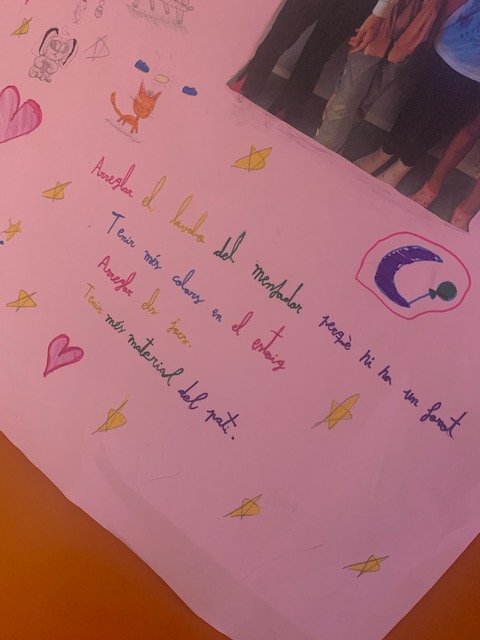 Arreglar el lavabo del menjador perquè hi ha un forat
Tenir més colors en el estoig
Arreglar els jocs.
Tenir més material del pati.